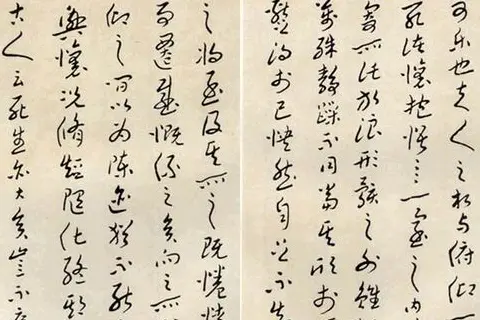 可樂也夫人之相与俯仰一
取諸懷抱悟言一室之内
寄所託放浪形骸之外雖
萬殊静躁不同當其欣於
暫得於己快然自足不
之將至及其所之既惓情
而遷感慨係之矣向之所
仰之間以為陳迹猶不能
興懷況脩短隨化終期
古人云死生亦大矣豈不